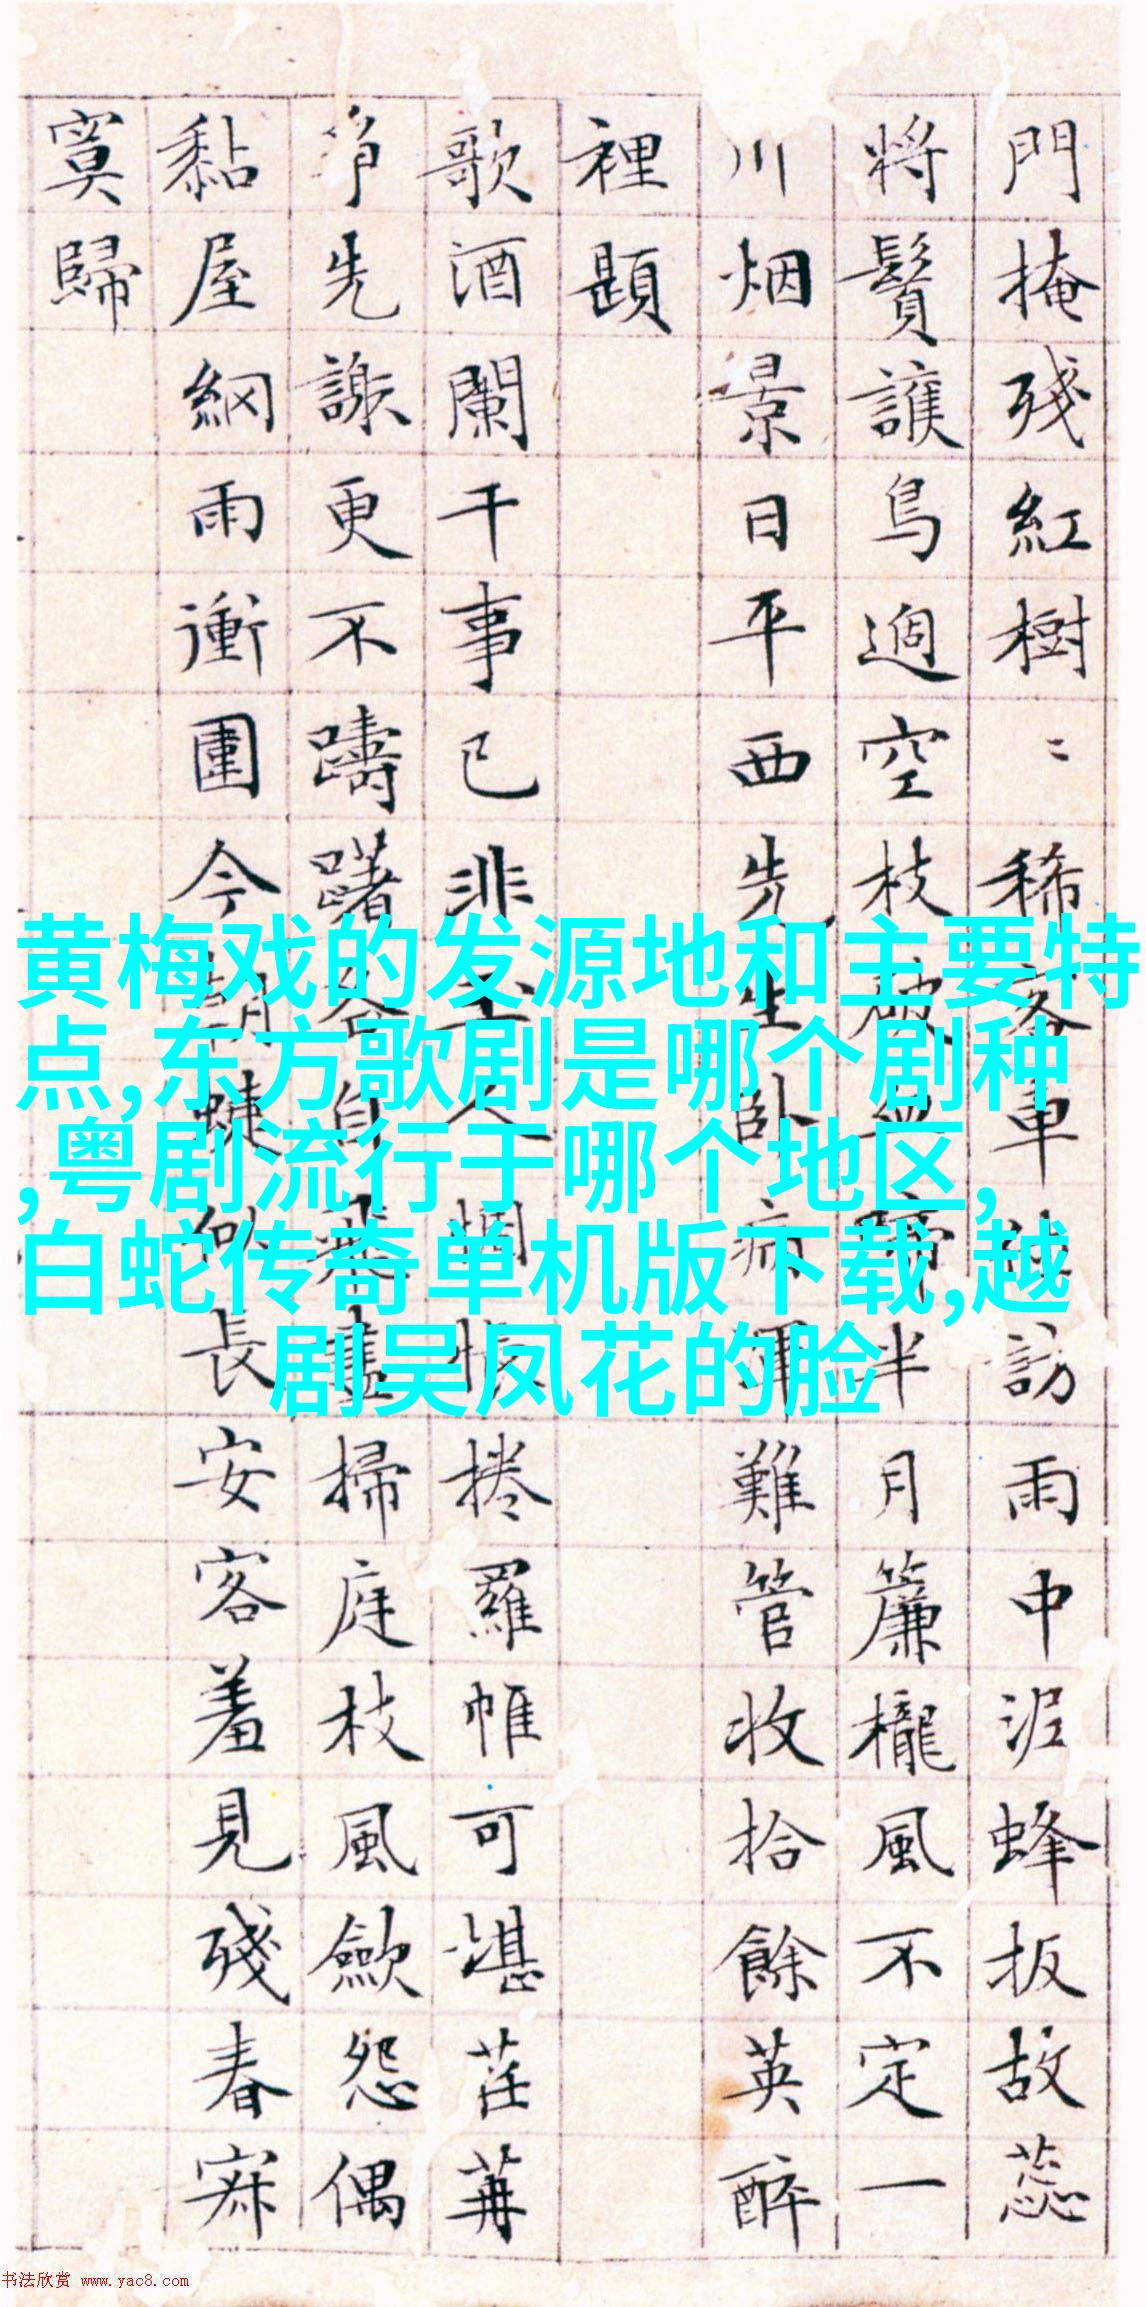 門掩殘紅樹〻稀客車訪雨中泥蜂扳故蕊
將鬚護鳥過空枝破血啼半月簾櫳風不定一
川烟景日平西先生臥病渾難管收拾餘英醉
裡題
歌酒闌干事已非主人惆悵捲羅帷可堪荏苒
爭先謝更不躊躇各自飛盡掃庭枝風歛怨偶
黏屋網雨衝圍今朝蜨似長安客羞見殘春寂
寞歸
黄梅戏的发源地和主要特
点,东方歌剧是哪个剧种
,粤剧流行于哪个地区,
白蛇传奇单机版下载,越
剧吴凤花的脸
书法欣赏 www.yac8.com